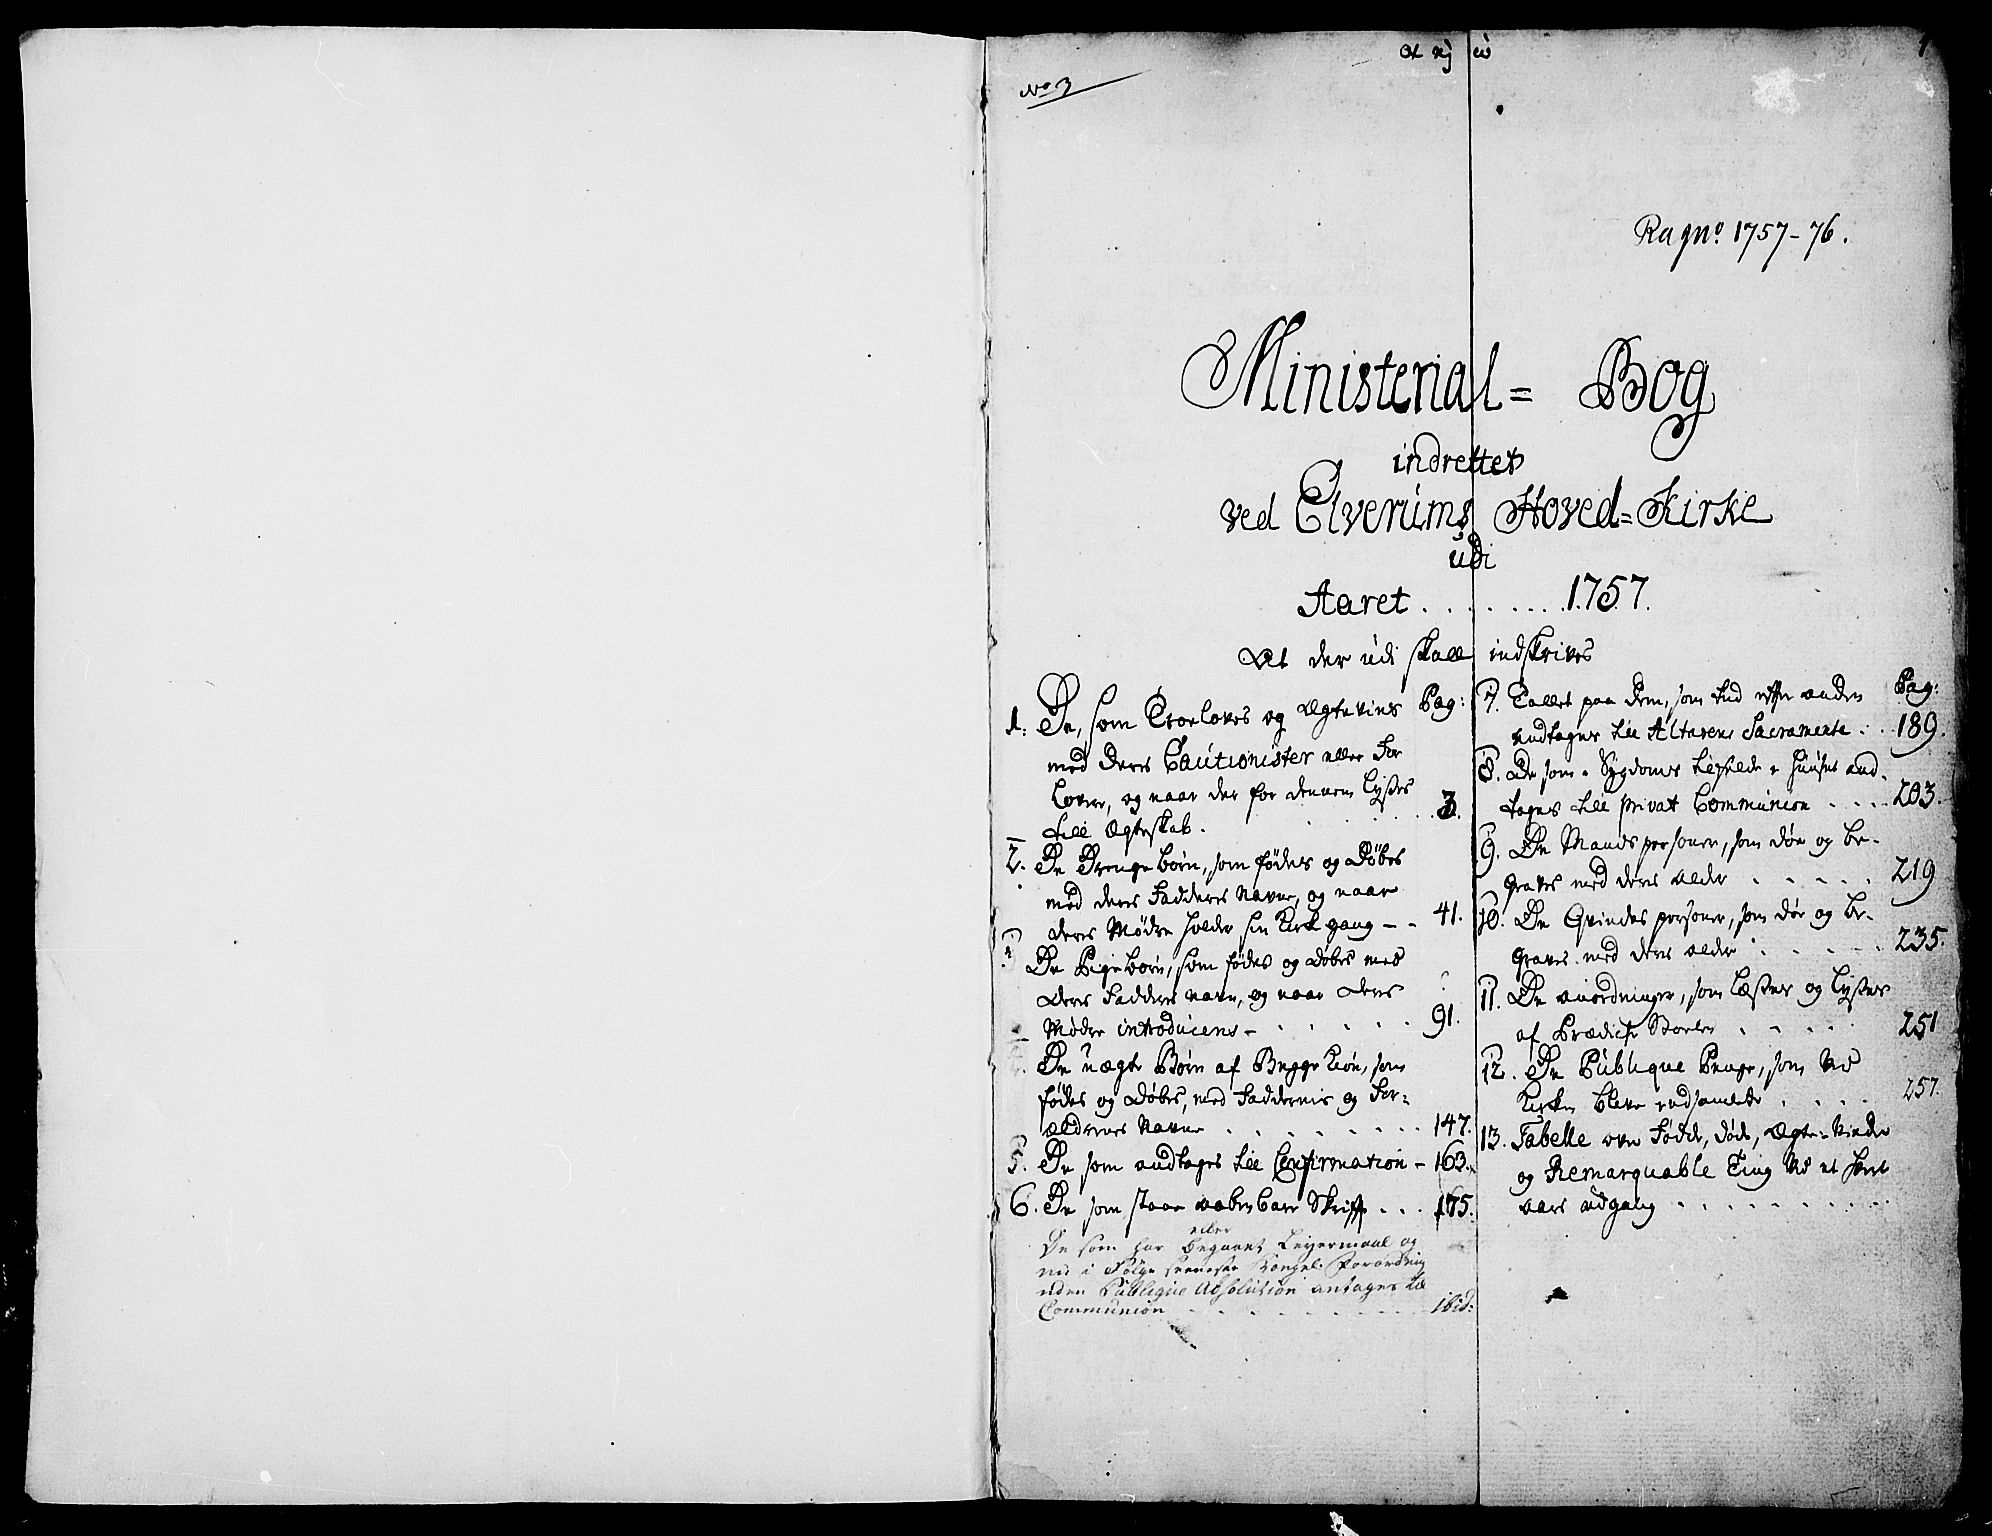 No 3
1
Ragnº 1757-76.
Ministerial= Bog
indrettet
ved Elverums Hoved=Kirke
udi
Aaret . . . . . . . . 1757.
At der udi skall indskrives
Pag:
1. De, som Troeloves og Ægtevies
med deres Cautionister eller For
Lovere, og naar der for dennem Lyses
till Ægteskab. . . . . . 3.
2. De Drenge børn, som fødes og Døbes
med deres Fadderes Navne, og naar
deres Mødre holder sin Kirkgang - - 41.
3. De Pigebørn, som fødes og Døbes med
deres Fadderes navne, og naar deres
Mødre introduceres - . . . . . 91.
4. De uægte Børn af Begge Kiøn, som
fødes og Døbes, med Faddernis og For=
ældrenes Navne . . . . . . . . 147.
5. De som andtages till Confirmation - 163.
6. De som staar aabenbare Skrifft . . . 175.
eller
De som har begaaet Leyermaal og
nu i Følge seeneste Kongel: Forordning
uden Publique Absolution antages til
Communion - - - - - - - - ibid:
Pag:
7. Tallet paa Dem, som Tid efter anden
andtages till Altarens Sacramente . . 189.
8. De som i Sygdoms tilfælde i Huuset and-
tages till privat Communion . . . . 203.
9. De Mands personer, som døe og be-
graves med deres alder . . . . . 219
10. De Qvindes personer, som døe og be-
graves med deres alder . . . . . 235.
11. De anordninger, som læses og Lyses
af Prædicke Stoelen . . . . . 251
12. De Publique Penge, som ved
Kirken bleve indsamlede . . . . 257.
13. Tabelle over Fødde, døde, Ægte-viede
og Remarquable Ting ved et hvert
aars udgang . . . . . . . . . .